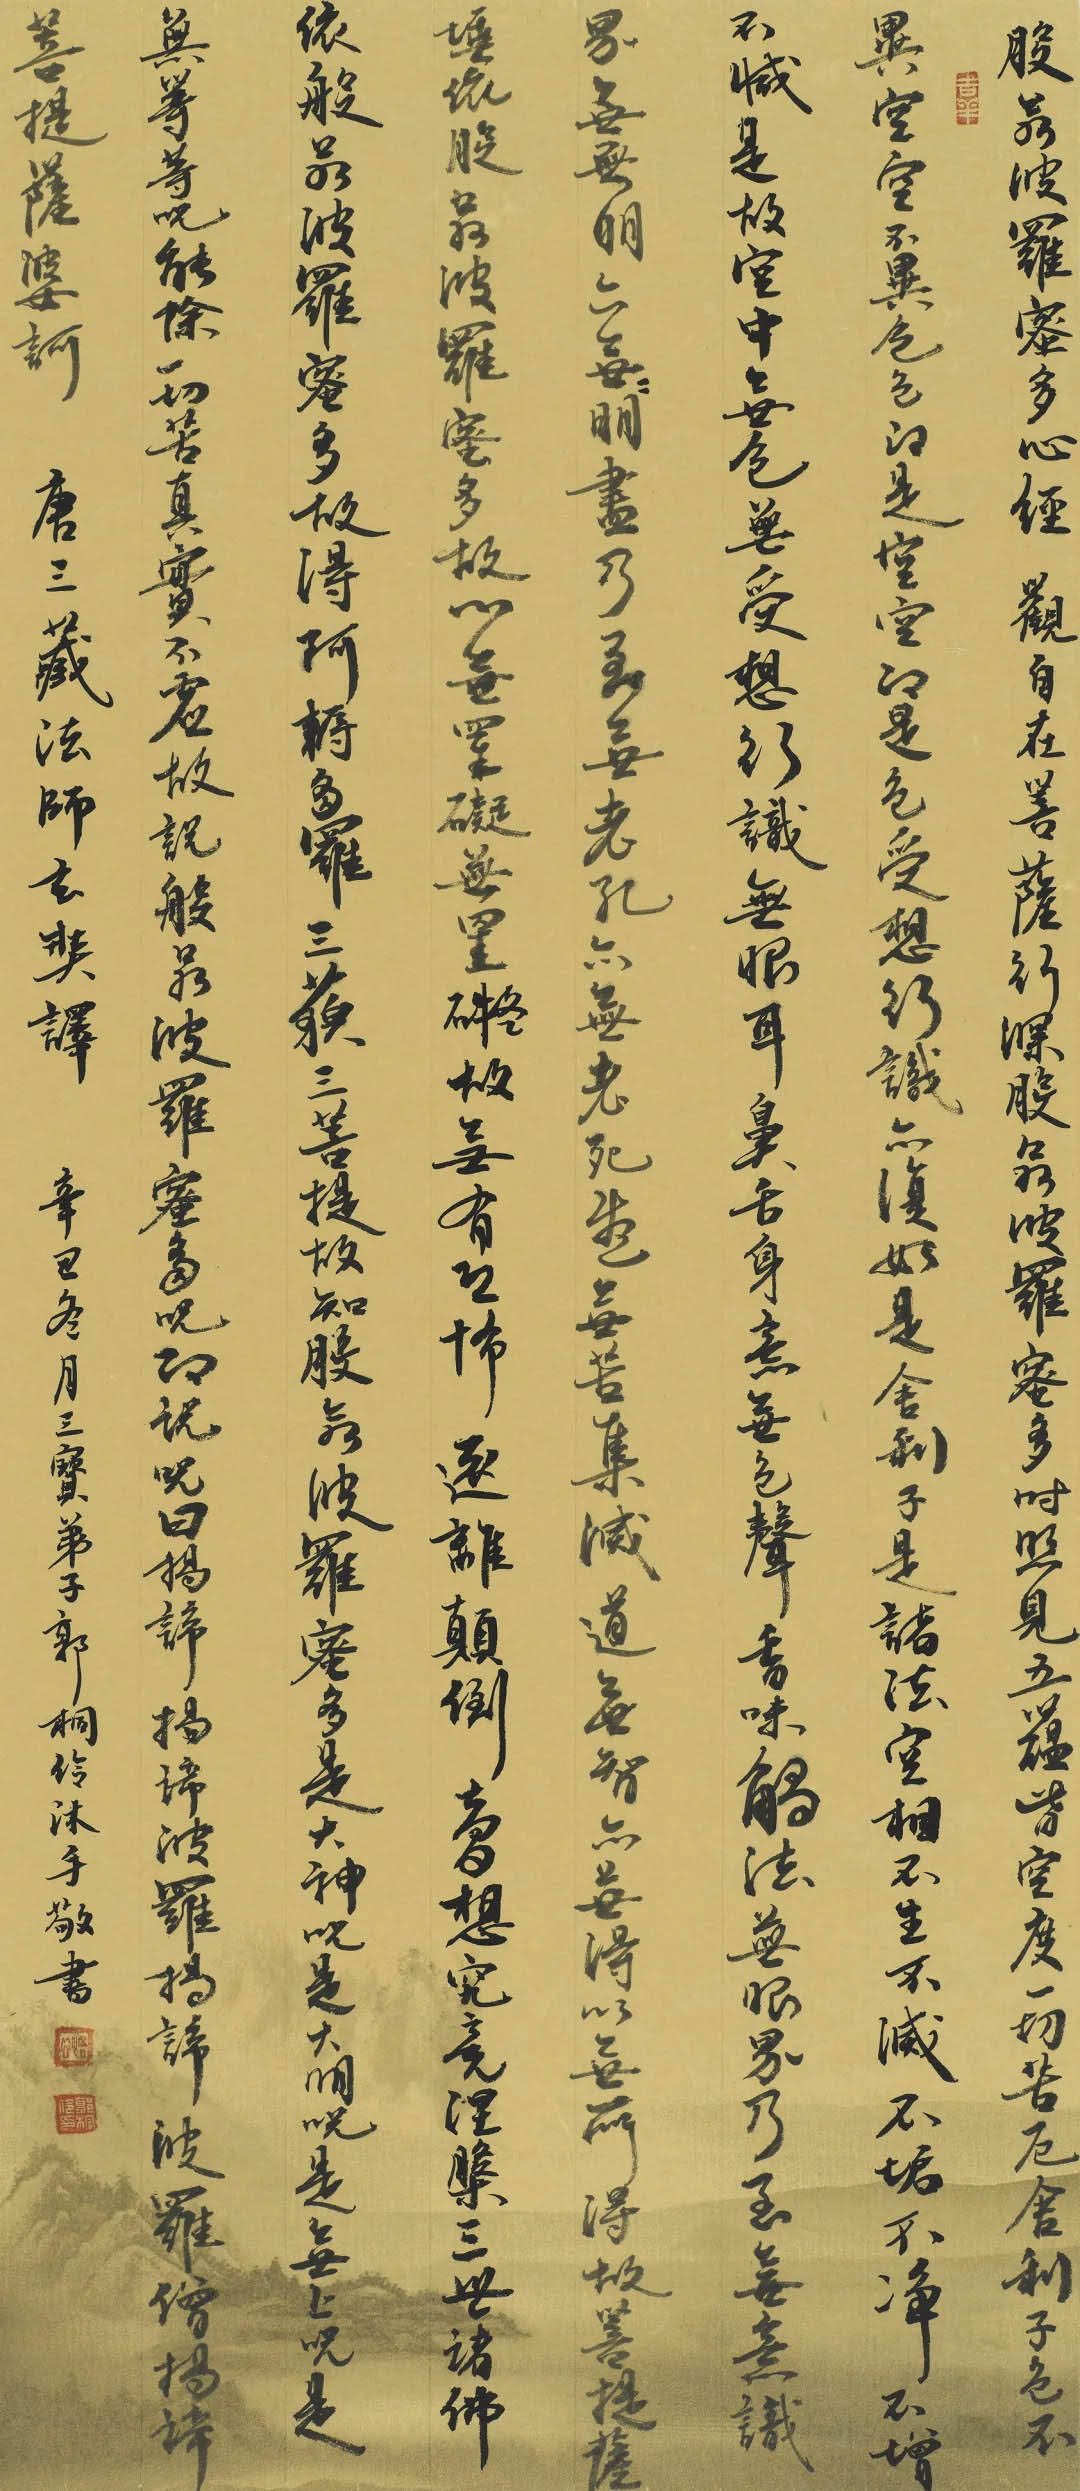 般若波羅蜜多心經 觀自在菩薩行深般若波羅蜜多時照見五蘊皆空度一切苦厄舍利子色不
異空空不異色色即是空空即是色受想行識亦復如是舍利子是諸法空相不生不滅不垢不淨不增
不減是故空中無色無受想行識無眼耳鼻舌身意無色聲香味觸法無眼界乃至無意識
界無無明亦無〻明盡乃至無老死亦無老死盡無苦集滅道無智亦無得以無所得故菩提薩
埵依般若波羅蜜多故心無罣礙無罣礙故無有恐怖遠離顛倒夢想究竟涅槃三世諸佛
依般若波羅蜜多故得阿耨多羅三藐三菩提故知般若波羅蜜多是大神咒是大明咒是無上咒是
無等等咒能除一切苦真實不虛故說般若波羅蜜多咒即說咒曰揭諦揭諦波羅揭諦波羅僧揭諦
菩提薩婆訶 唐三藏法師玄奘譯 辛丑冬月三寶弟子郭桐伶沐手敬書